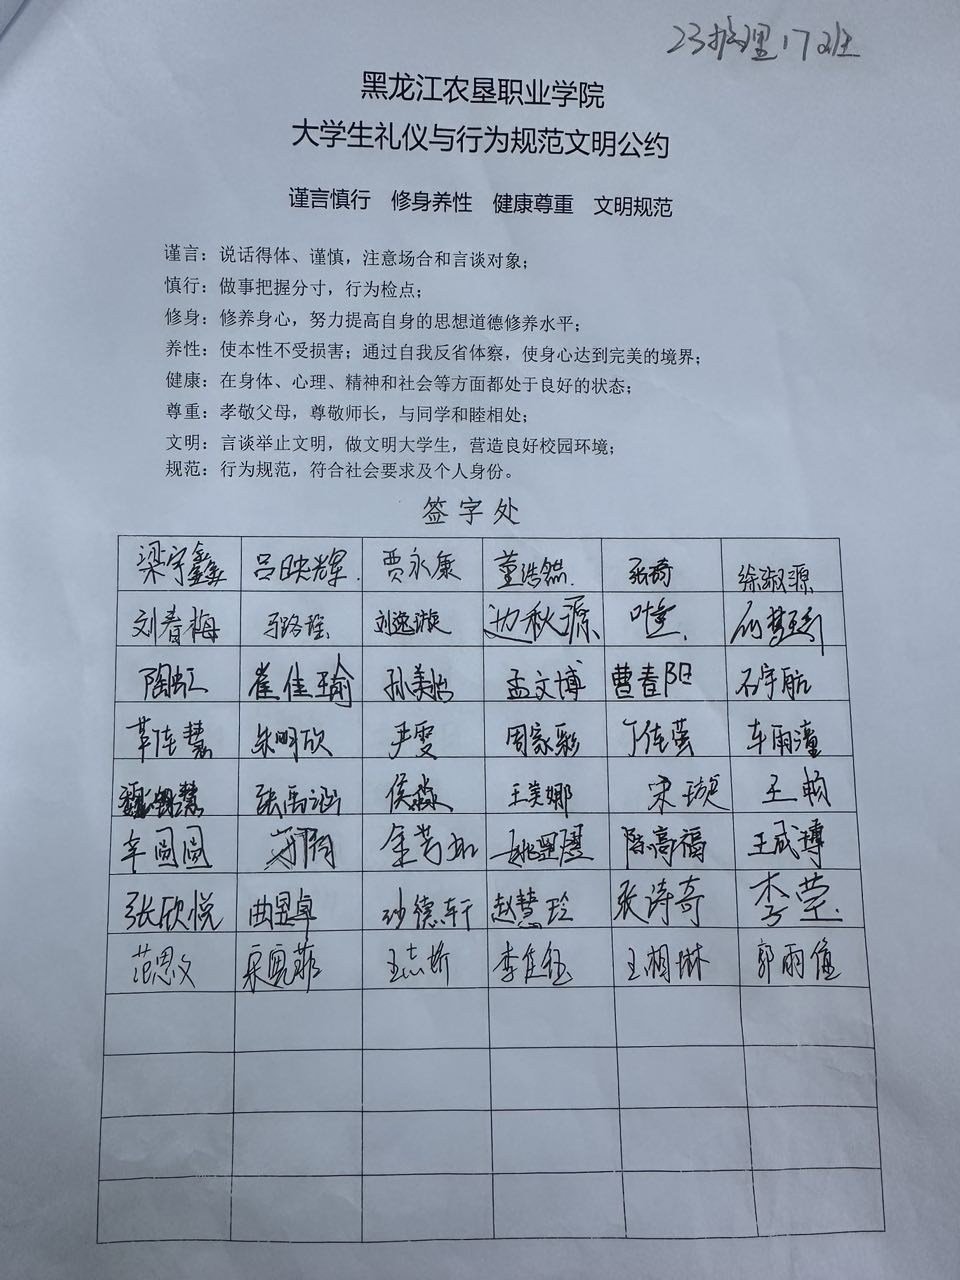 23护理17班
黑龙江农垦职业学院
大学生礼仪与行为规范文明公约
谨言慎行 修身养性 健康尊重 文明规范
谨言：说话得体、谨慎，注意场合和言谈对象；
慎行：做事把握分寸，行为检点；
修身：修养身心，努力提高自身的思想道德修养水平；
养性：使本性不受损害；通过自我反省体察，使身心达到完美的境界；
健康：在身体、心理、精神和社会等方面都处于良好的状态；
尊重：孝敬父母，尊敬师长，与同学和睦相处；
文明：言谈举止文明，做文明大学生，营造良好校园环境；
规范：行为规范，符合社会要求及个人身份。
签字处
梁宇鑫 吕映辉 贾永康 董浩然 张琦 徐淑源
刘春梅 马路瑶 刘逸漩 边秋源
陶虹 崔佳瑜 孙美怡 孟文博 曹春阳 石宇航
朱明欣 尹雯 周家彩 丁佳莹 车雨潼
张禹涵 侯淼 王美娜 宋璇 王畅
辛圆圆 陈高福 王成博
张欣悦 曲昱卓 沙德轩 赵慧玲 张诗奇 李莹
范思文 王志娇 李佳钰 王湘琳 郭雨僮